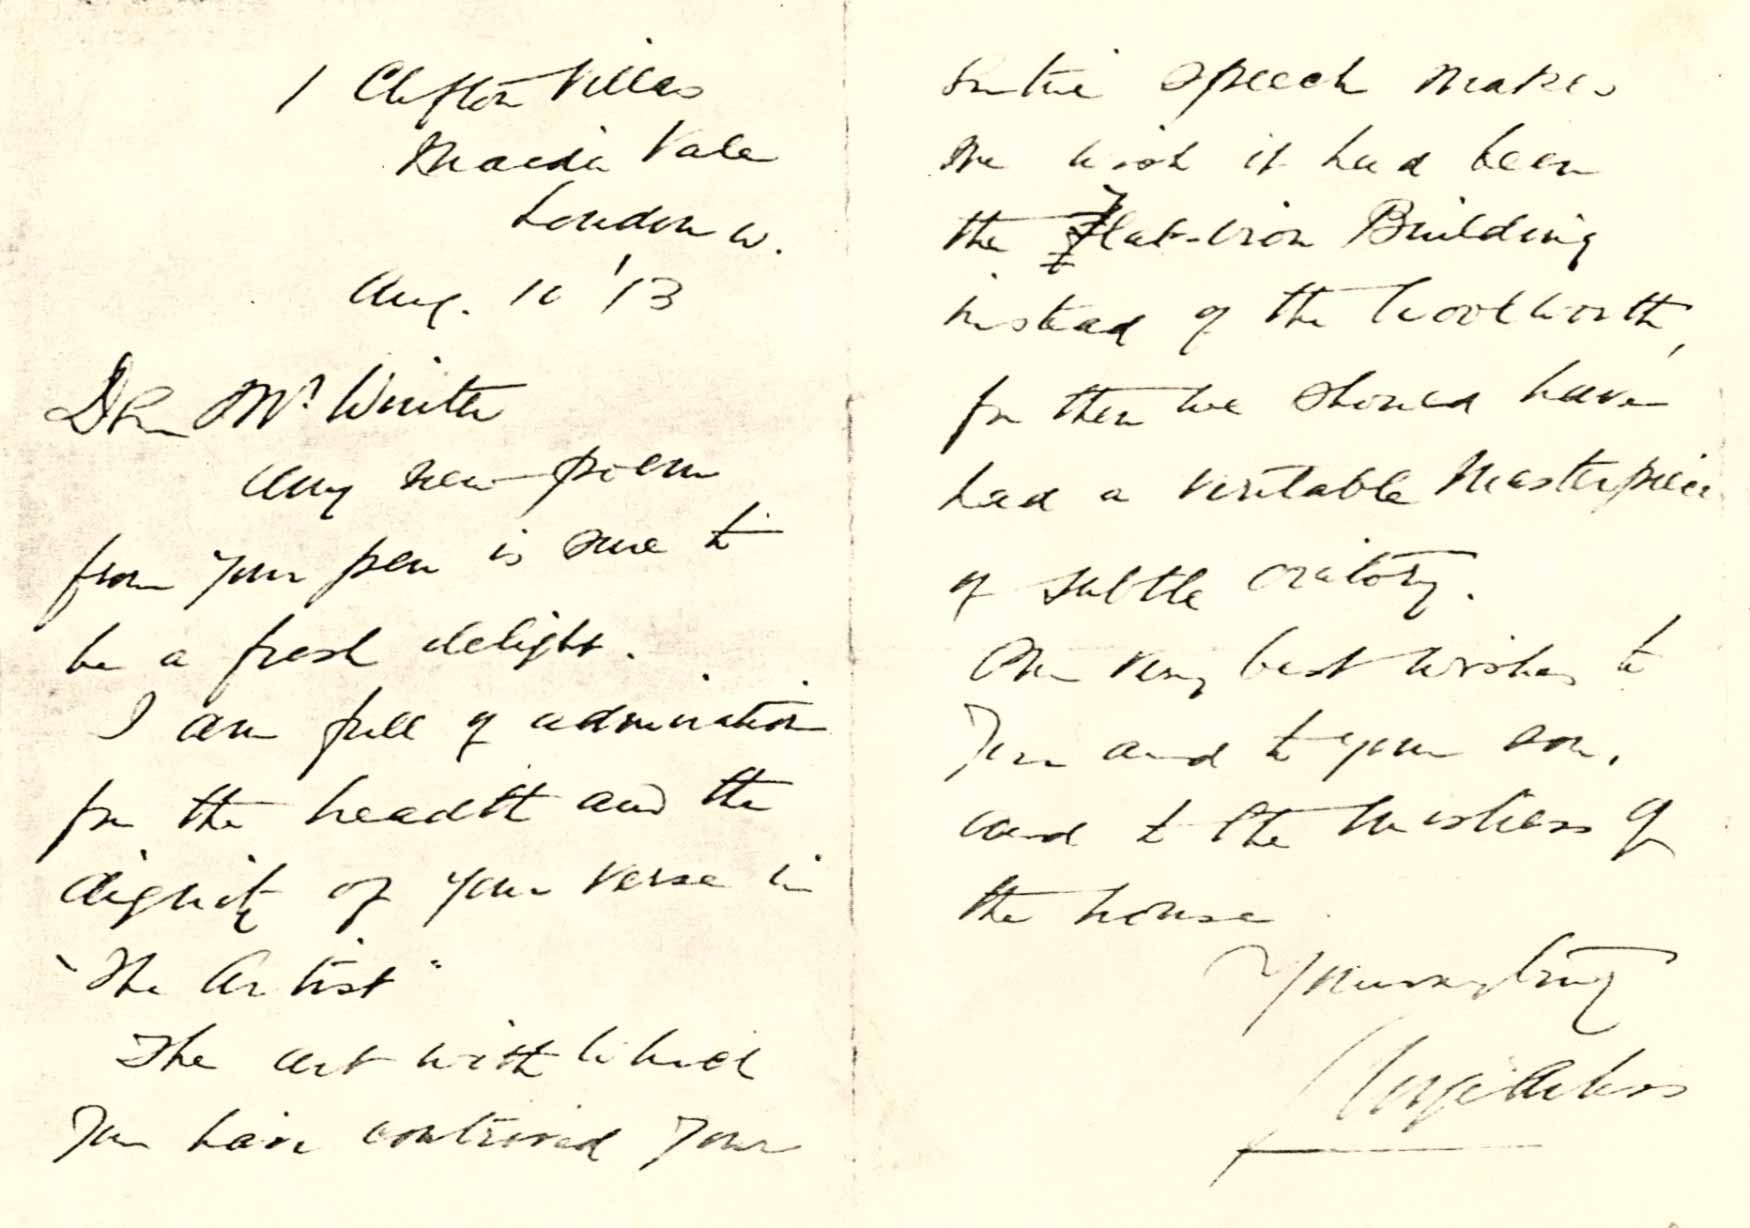 1 Clifton Villas
Maida Vale
London W.
Aug. 10 '13
Dear Mr Winter
Any new poem
from your pen is sure to
be a fresh delight.
I am full of admiration
for the breadth and the
dignity of your verse in
"The Artist"
The art with which
You have contrived your
entire speech makes
me wish it had been
the Flat-iron Building
instead of the Woolworth,
for then we should have
had a veritable Masterpiece
of subtle oratory.
Our very best wishes to
You and to your son,
and to the Mistress of
the house
Yours